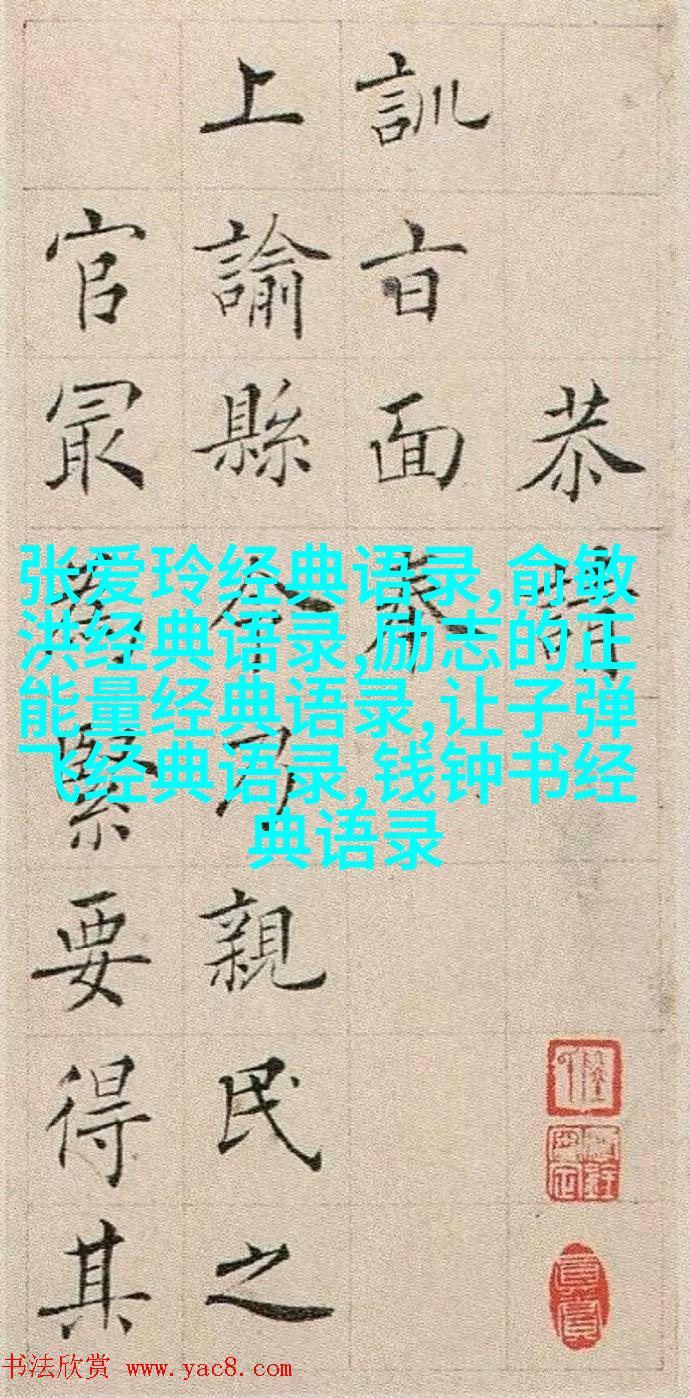 恭請
訓旨面奉
上諭縣令乃親民之
官冣為緊要得其
张爱玲经典语录,俞敏
洪经典语录,励志的正
能量经典语录,让子弹
飞经典语录,钱钟书经
典语录
书法欣赏 www.yac8.com